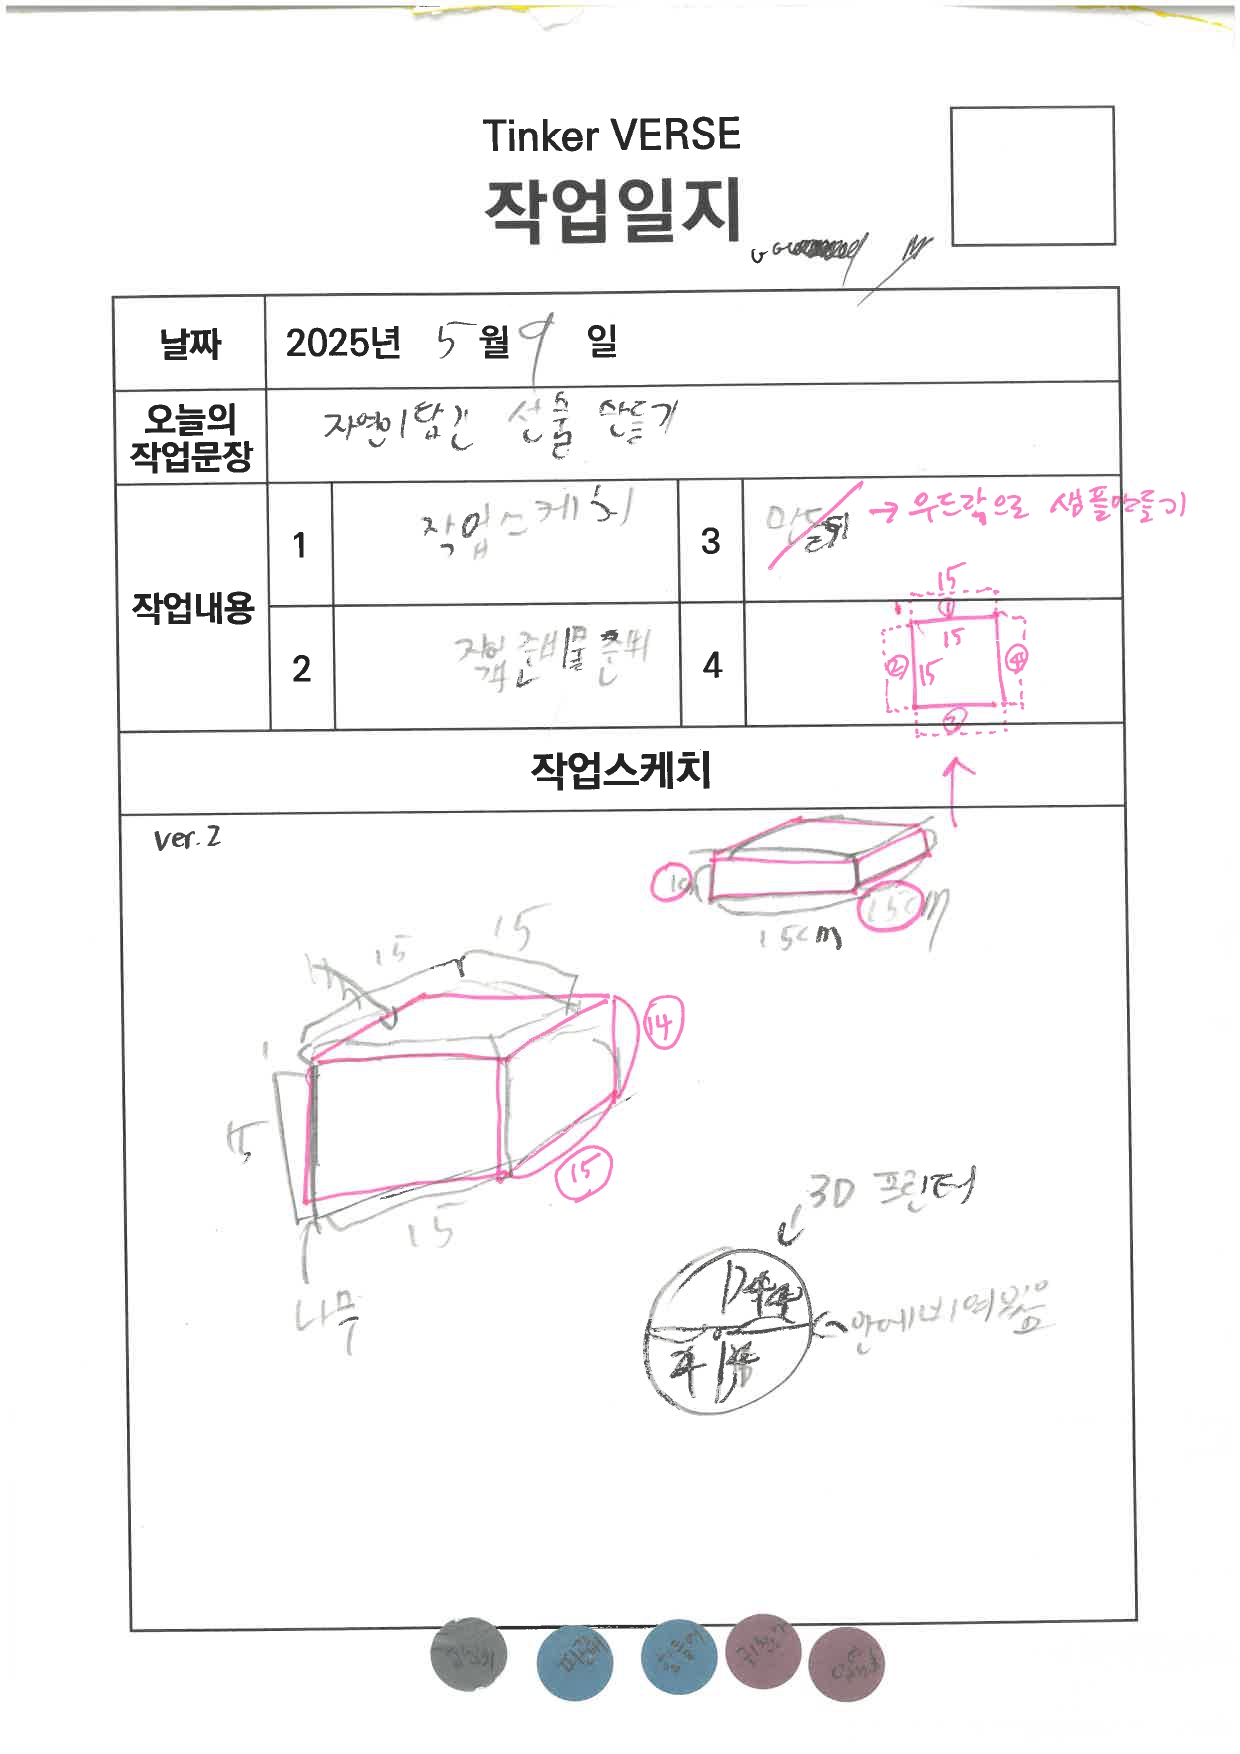 Tinker VERSE
작업일지
날짜
2025년 5월 9일
오늘의
작업문장
자연이 담긴 선물 만들기
작업내용
1
작업스케치
3
만들기 → 우드락으로 샘플만들기
2
작업 준비물 준비
4
15
①
15
②
15
④
③
작업스케치
ver.2
15cm
15cm
15
15
14
15
15
15
나무
3D 프린터
안에 비여있음